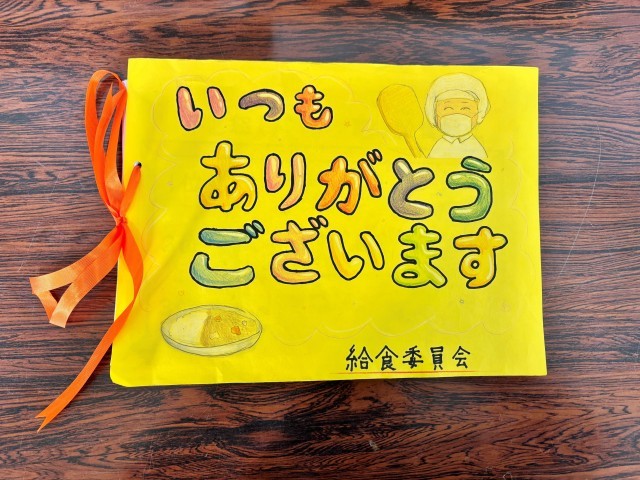 いつも
ありがとう
ございます
給食委員会